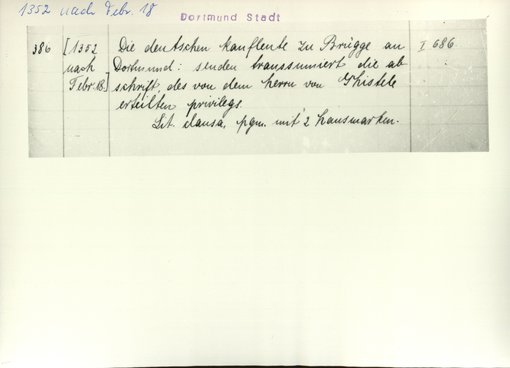 1352 nach Febr. 18
Dortmund Stadt
386 [1352 Die deutschen kaufleute zu Brügge an I 686
nach Dortmund: senden transsumiert die ab
Febr. 18.] schrift des von dem herrn von Ghistele
erteilten privilegs.
Lit. clausa, pgm. mit 2 hausmarken.